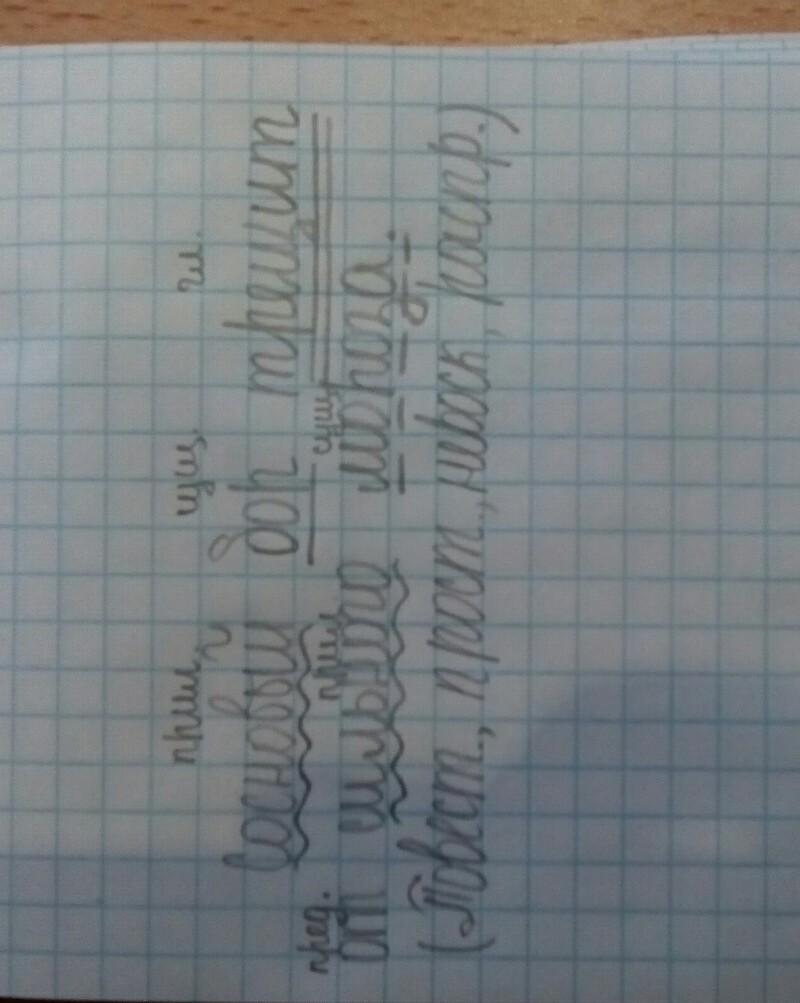 прил. сущ. гл.
Сосновый бор трещит
пред. прил. сущ.
от сильного мороза.
(Повест., прост., невоск, распр.)